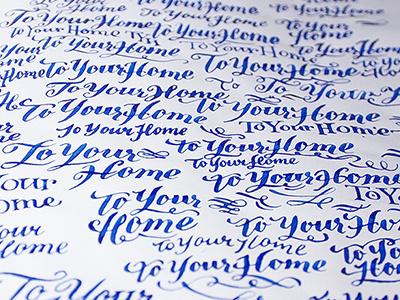 To Your Home
To Your Home
To Your Home
To Your Home
To Your Home
To Your Home
To Your Home
To Your Home
To Your Home
To Your Home
To Your Home
To Your Home
To Your Home
To Your Home
To Your Home
To Your Home
To Your
Home
To Your Home
To Your Home
To Your Home
Your
Home
To Your
Home
To Your Home
To Your Home
To Your Home
Your
Home
To Your Home
To Your
Home
To Your